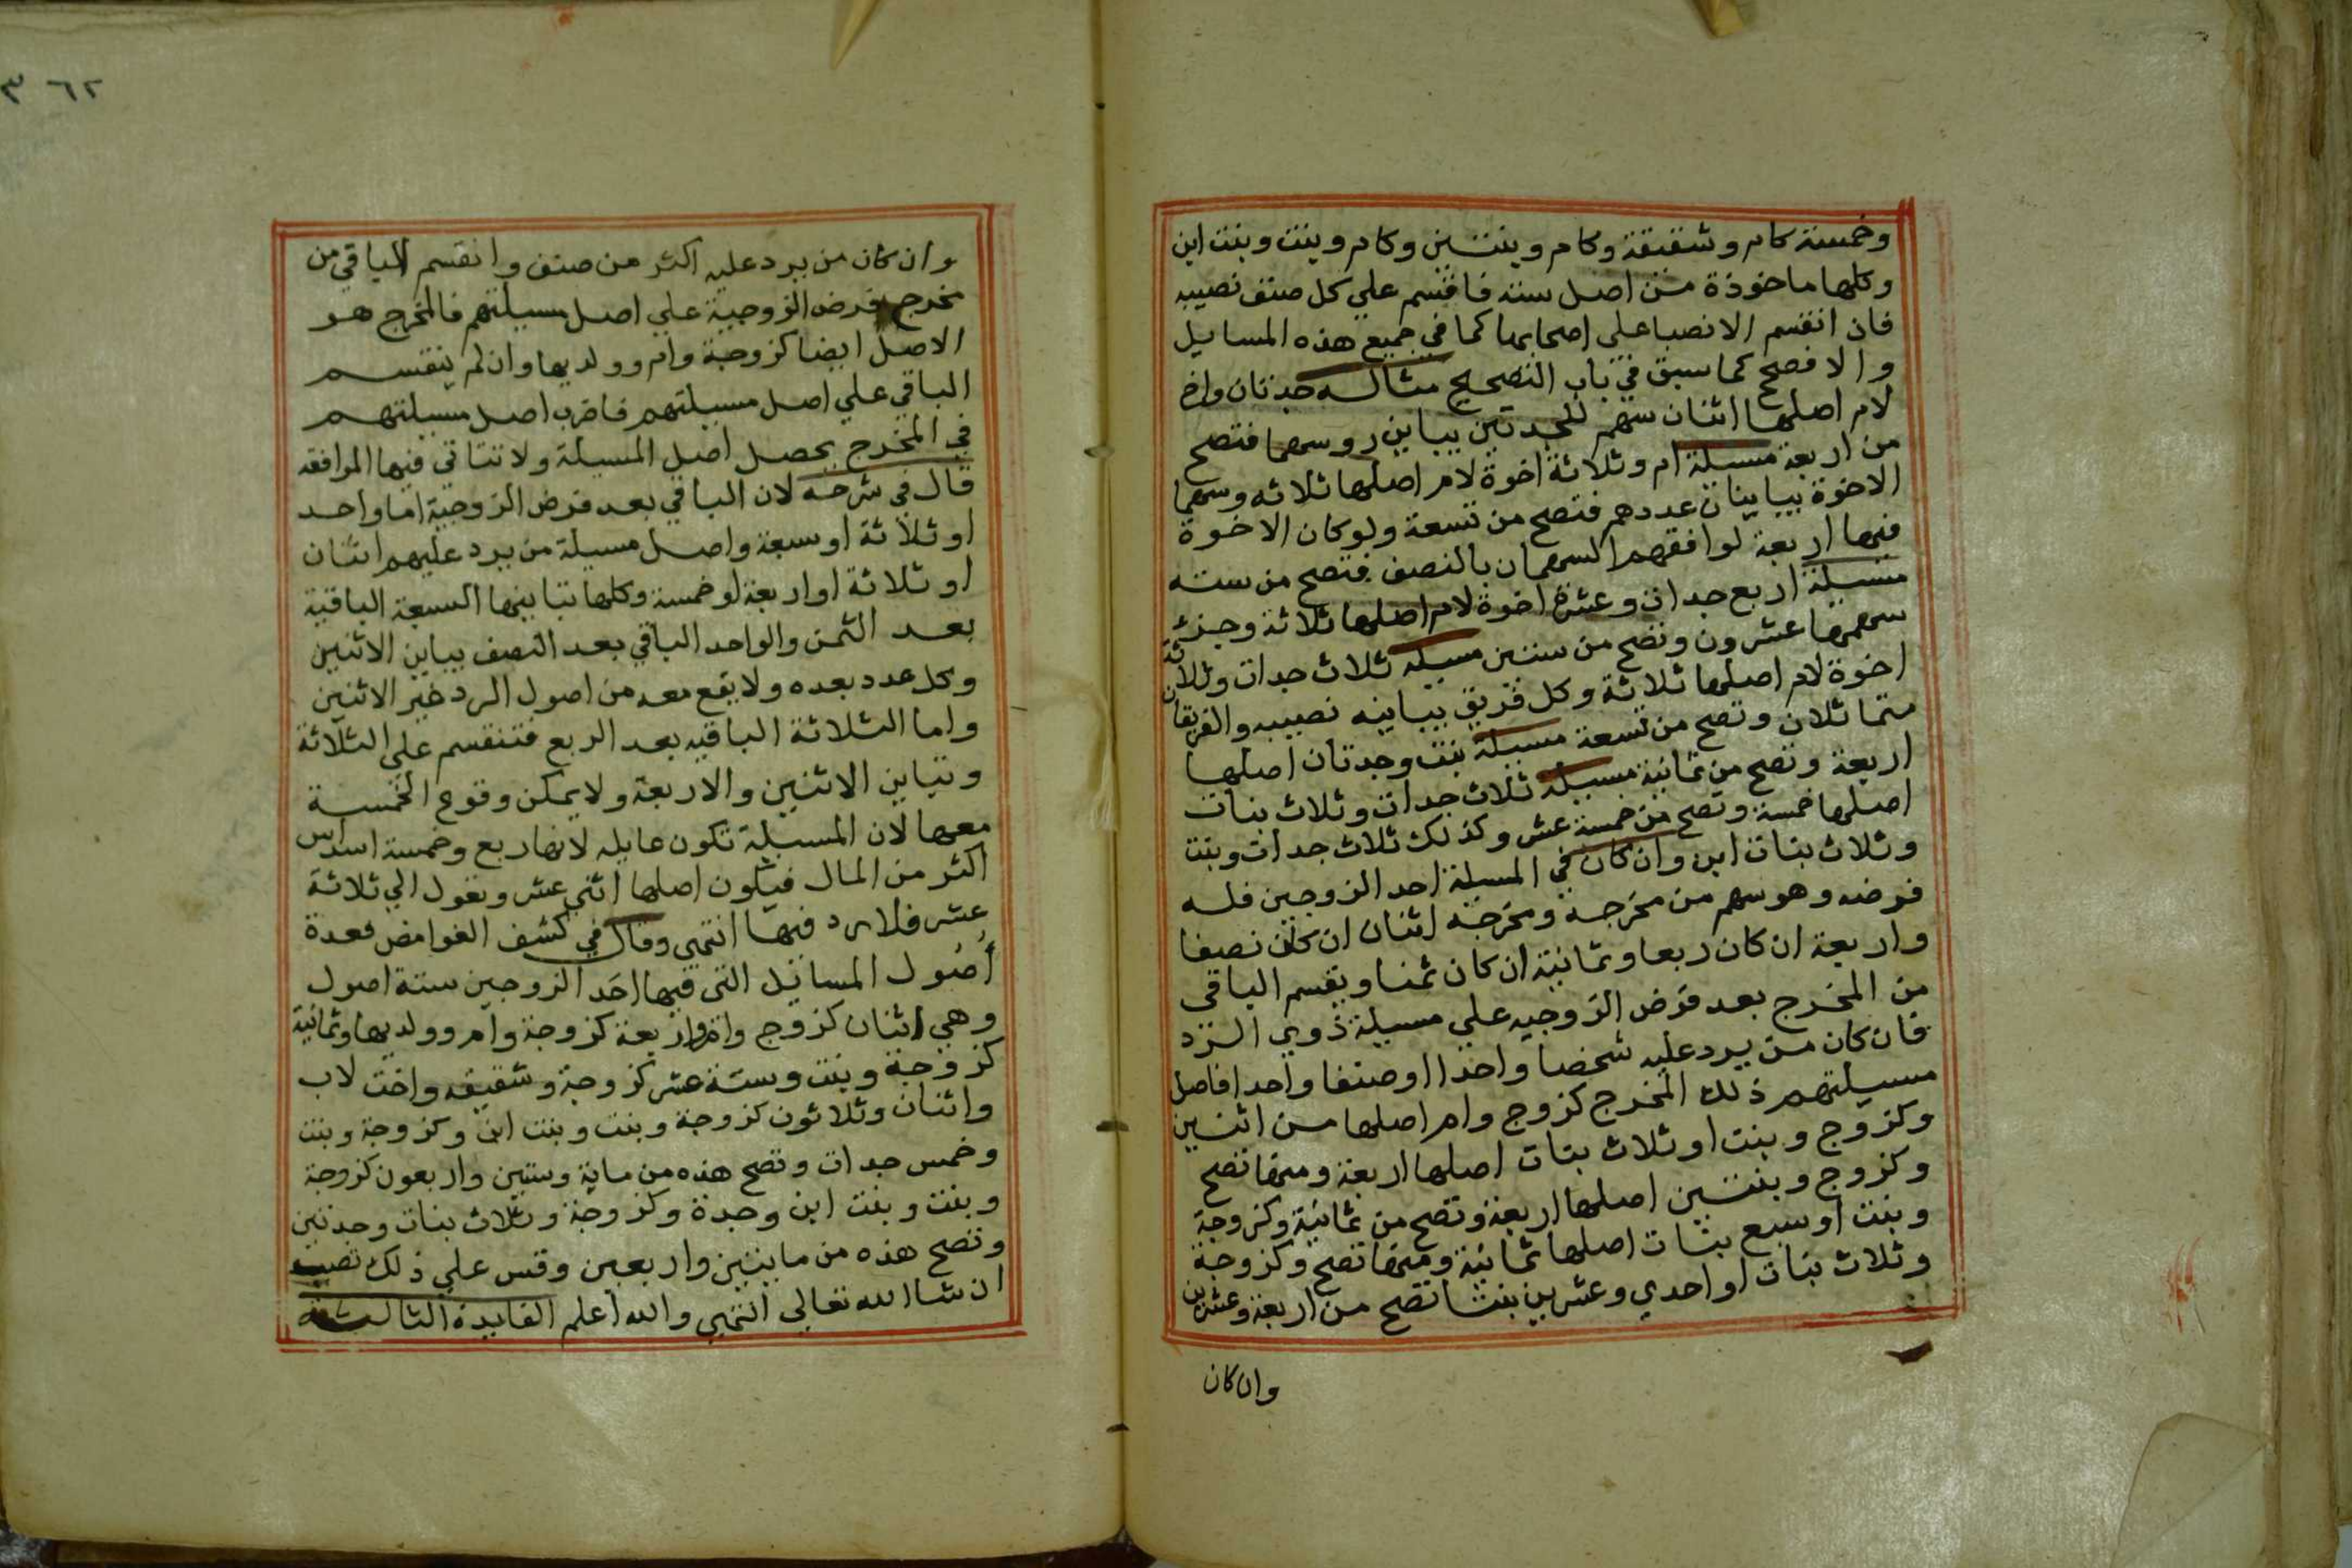 وخمسة كام وشقيقة وكام وبنتين وكام وبنت وبنت ابن
وكلها ماخوذة من اصل ستة فاقسم علي كل صنف نصيبه
فان انقسم الانصبا على اصحابها كما في جميع هذه المسايل
والا فصحح كما سبق في باب التصحيح مثاله جدتان واخ
لام اصلها اثنان سهم للجدتين يباين روسهما فتصح
من اربعة مسيلة ام وثلاثة اخوة لام اصلها ثلاثه وسهما
الاخوة يباينان عددهم فتصح من تسعة ولو كان الاخوة
فيها اربعة لوافقهم السهمان بالنصف فتصح من سته
مسيلة اربع جدات وعشرة اخوة لام اصلها ثلاثة وجزء
سهمها عشرون وتصح من ستين مسيله ثلاث جدات وثلاثة
اخوة لام اصلها ثلاثة وكل فريق يباينه نصيبه والفريقان
متماثلان وتصح من تسعة مسيلة بنت وجدتان اصلها
اربعة وتصح من ثمانية مسيلة ثلاث جدات وثلاث بنات
اصلها خمسة وتصح من خمسة عشر وكذلك ثلاث جدات وبنت
وثلاث بنات ابن وان كان في المسيلة احد الزوجين فله
فرضه وهو سهم من مخرجه ومخرجه اثنان ان كان نصفا
واربعة ان كان ربعا وثمانية ان كان ثمنا ويقسم الباقي
من المخرج بعد فرض الزوجيه علي مسيلة ذوي الرد
فان كان من يرد عليه شخصا واحدا او صنفا واحدا فاصل
مسيلتهم ذلك المخرج كزوج وام اصلها من اثنين
وكزوج وبنت او ثلاث بنات اصلها اربعة ومنها تصح
وكزوج وبنتين اصلها اربعة وتصح من ثمانية وكزوجة
وبنت او سبع بنات اصلها ثمانية ومنها تصح وكزوجة
وثلاث بنات او احدي وعشرين بنتا تصح من اربعة وعشرين
وان كان
٣٦٢
وان كان من يرد عليه اكثر من صنف وانقسم الباقي من
مخرج فرض الزوجية علي اصل مسيلتهم فالمخرج هو
الاصل ايضا كزوجة وام وولديها وان لم ينقسم
الباقي علي اصل مسيلتهم فاضرب اصل مسيلتهم
في المخرج يحصل اصل المسيلة ولا تتاتي فيها الموافقه
قال في شرحه لان الباقي بعد فرض الزوجية اما واحد
او ثلاثة او سبعة واصل مسيلة من يرد عليهم اثنان
او ثلاثة او اربعة او خمسة وكلها تباينها السبعة الباقية
بعد الثمن والواحد الباقي بعد النصف يباين الاثنين
وكل عدد بعده ولا يقع معه من اصول الرد غير الاثنين
واما الثلاثة الباقيه بعد الربع فتنقسم علي الثلاثة
وتباين الاثنين والاربعة ولا يمكن وقوع الخمسة
معها لان المسيلة تكون عايله لانها ربع وخمسة اسداس
اكثر من المال فيكون اصلها اثني عشر وتعول الي ثلاثة
عشر فلا رد فيها انتهى وقال في كشف الغوامض فعدة
أصُول المسائيل التى فيها احَد الزوجين ستة اصول
وهي اثنان كزوج وام واربعة كزوجة وام وولديها وثمانية
كزوجة وبنت وستة عشر كزوجة وشقيقه واخت لاب
واثنان وثلاثون كزوجة وبنت وبنت ابن وكزوجة وبنت
وخمس جدات وتصح هذه من ماية وستين واربعون كزوجة
وبنت وبنت ابن وجدة وكزوجة وثلاث بنات وجدتين
وتصح هذه من مايتين واربعين وقس علي ذلك تصب
ان شا الله تعالي انتهي والله اعلم الفايدة الثالثة